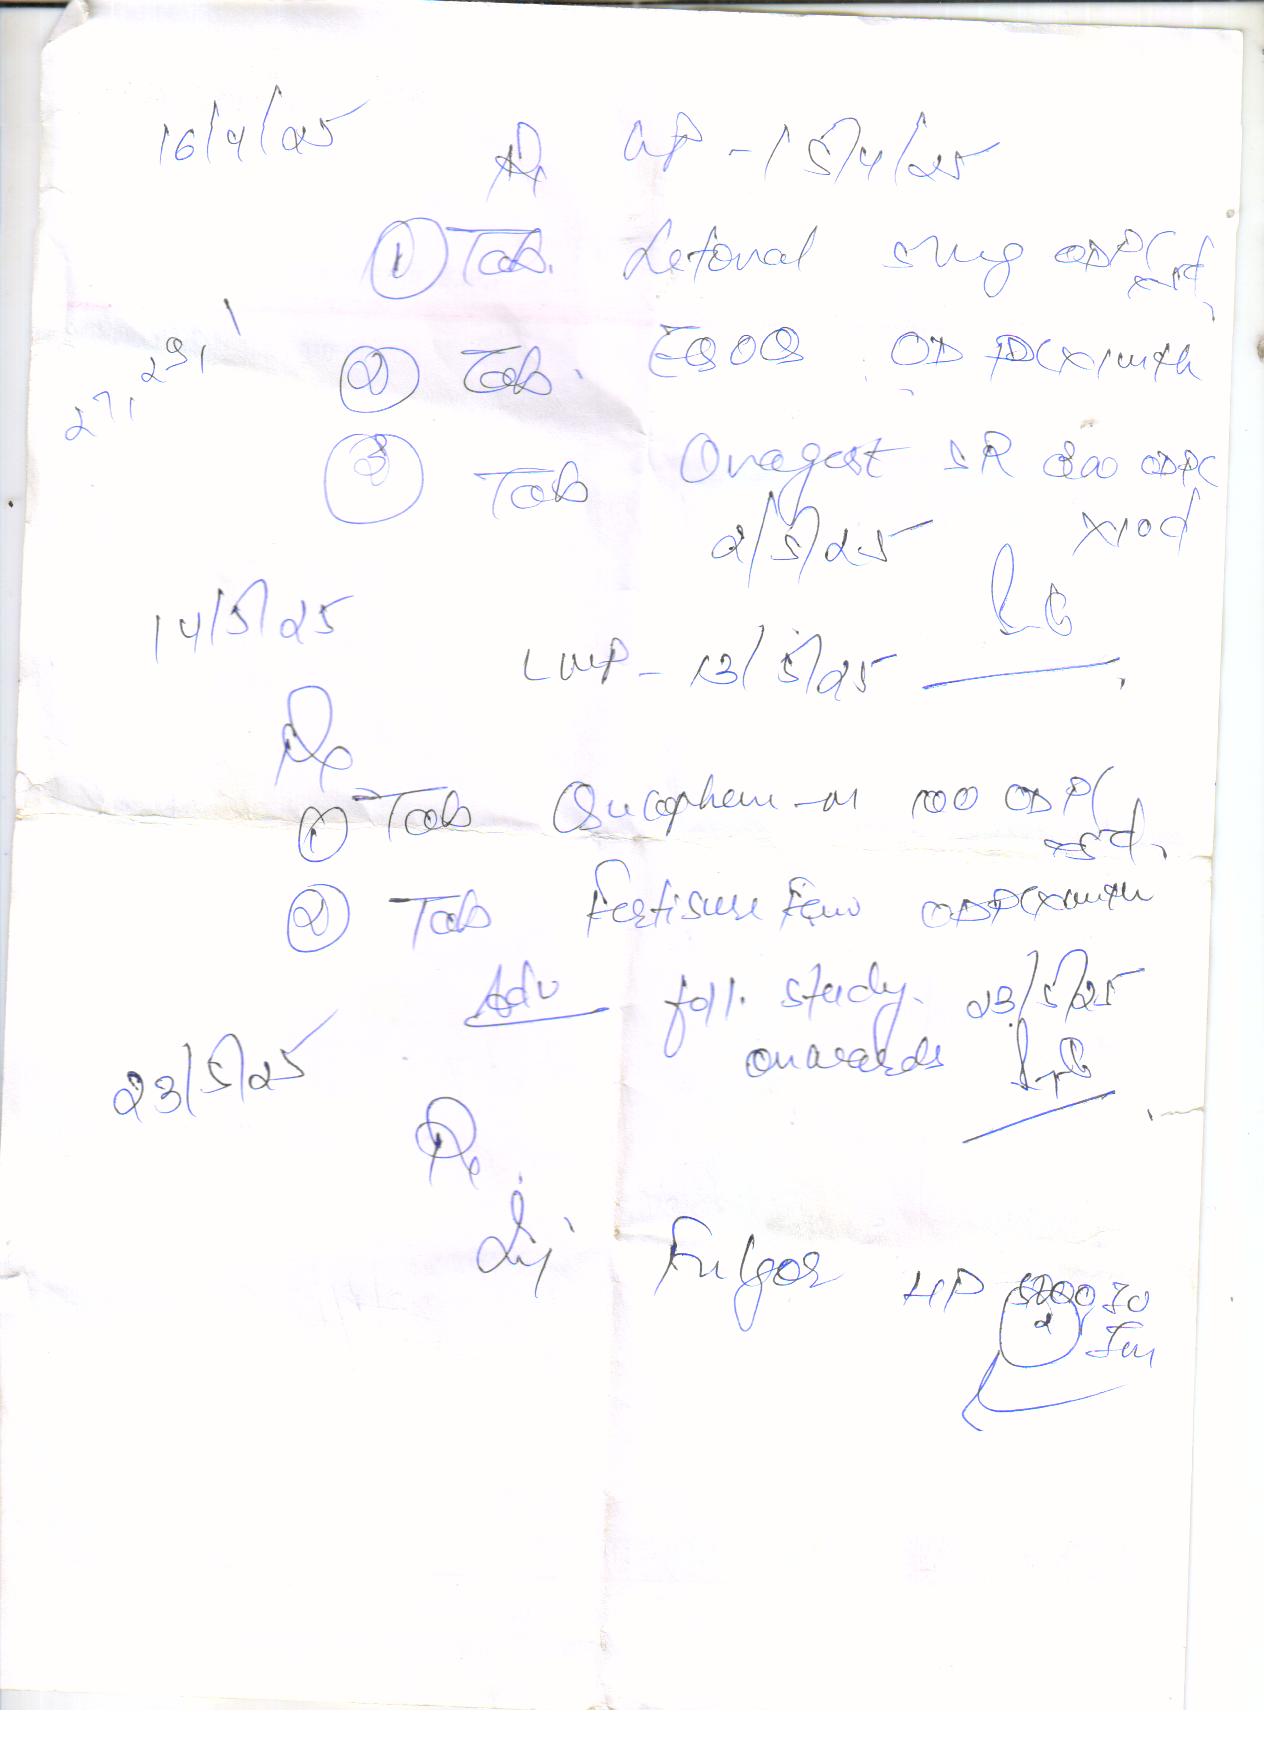 16/4/25
Rx LMP - 15/4/25
① Tab. Letoval 5mg ODPC x5d
② Tab. EQOQ OD PC x 1 mnth
27, 29,
③ Tab Ovagest SR 300 ODPC
2/5/25 x10d
14/5/25
LMP - 13/5/25
Rx
① Tab Ovuophene-M 100 ODPC
x5d
② Tab Fertisure Fem ODPC x 1 mnth
Adv foll. study 23/5/25
onwards
23/5/25
Rx
Inj. Fulgor HP 5000 IU
2 Im